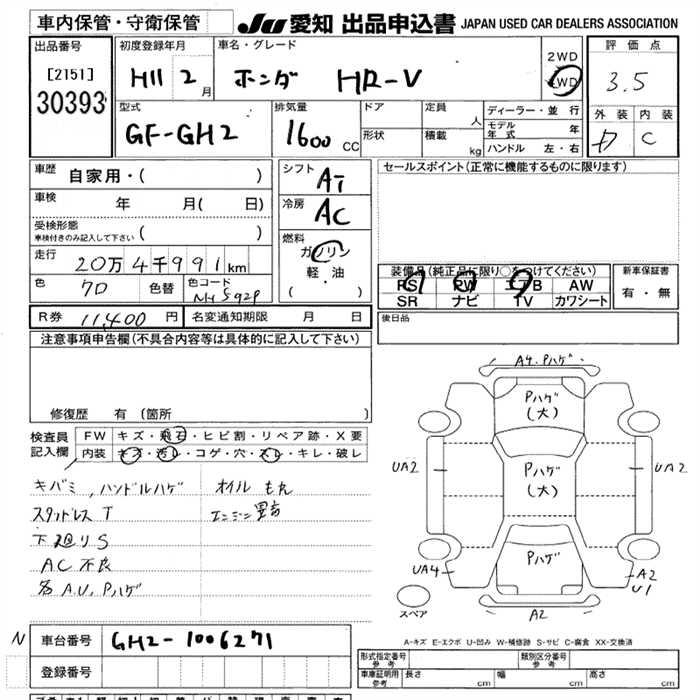 車内保管・守衛保管 JU 愛知 出品申込書 JAPAN USED CAR DEALERS ASSOCIATION
出品番号 [2151] 30393
初度登録年月 H11 2月
車名・グレード ホンダ HR-V
2WD 4WD
評価点 3.5
外装 内装 C
型式 GF-GH2
排気量 1600 CC
ドア 形状
定員 人 積載 kg
ディーラー・並行
モデル年式 年
ハンドル 左・右
車歴 自家用・( )
車検 年 月( 日)
受検形態 車検付きのみ記入して下さい ( )
走行 20万4千991km
色 クロ 色替 色コード
シフト AT
冷房 AC
燃料 ガソリン
軽・油
( ・ )
セールスポイント(正常に機能するものに限ります)
装備品(純正品に限り○をつけてください)
RS PW エアB AW
SR ナビ TV カワシート
新車保証書 有・無
R券 11,400円 名変通知期限 月 日
後日品
注意事項申告欄(不具合内容等は具体的に記入して下さい)
修復歴 有 (箇所 )
検査員記入欄
FW キズ・飛石・ヒビ割・リペア跡・X要
内装 キズ・汚レ・コゲ・穴・スレ・キレ・破レ
キバミ, ハンドルハゲ オイルもれ
スタッドレスT エンジン異音
下廻りS
AC不良
各A.U.Pハゲ
A4.Pハゲ
Pハゲ
(大)
UA2 UA2
Pハゲ
(大)
Pハゲ
UA4 A2
U1
スペア A2
A-キズ E-エクボ U-凹み W-補修跡 S-サビ C-腐食 XX-交換済
N 車台番号 GH2-1006271
登録番号
形式指定番号 参考 類別区分番号 参考
車庫証明用 参考 長さ cm 幅 cm 高さ cm